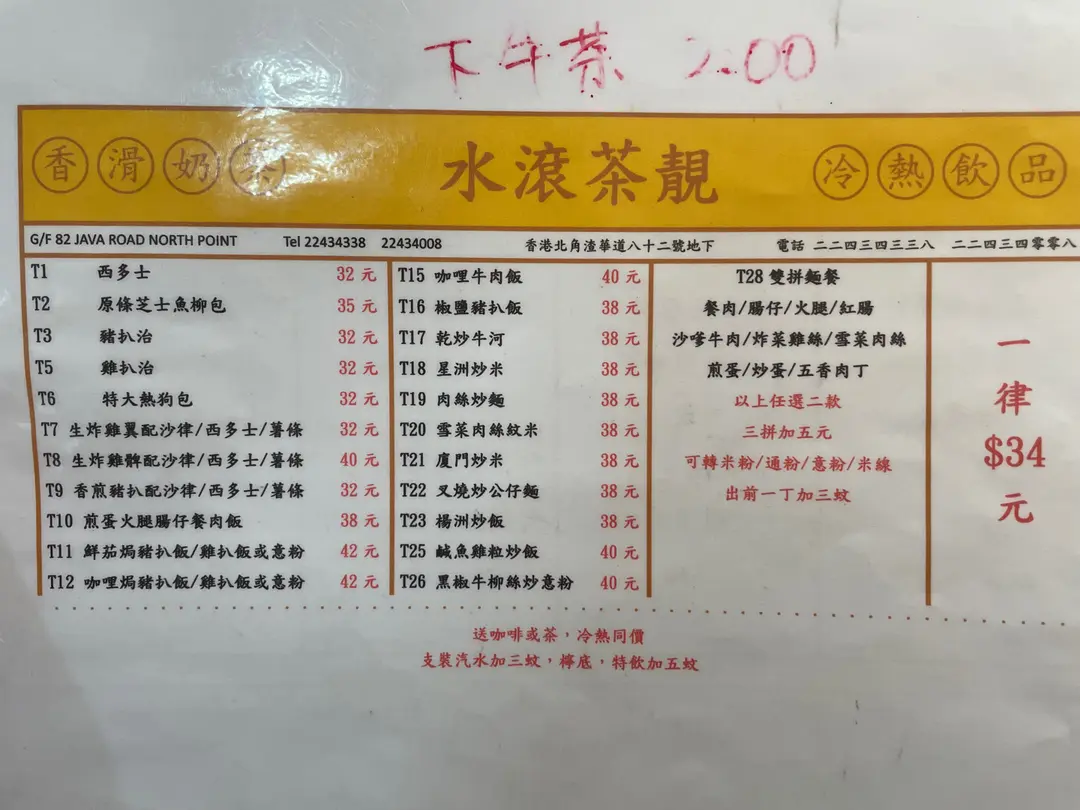 下午茶 2:00
香滑奶茶
水滾茶靚
冷熱飲品
G/F 82 JAVA ROAD NORTH POINT Tel 22434338 22434008 香港北角渣華道八十二號地下 電話 二二四三四三三八 二二四三四零零八
T1 西多士 32 元
T2 原條芝士魚柳包 35 元
T3 豬扒治 32 元
T5 雞扒治 32 元
T6 特大熱狗包 32 元
T7 生炸雞翼配沙律/西多士/薯條 32 元
T8 生炸雞髀配沙律/西多士/薯條 40 元
T9 香煎豬扒配沙律/西多士/薯條 32 元
T10 煎蛋火腿腸仔餐肉飯 38 元
T11 鮮茄焗豬扒飯/雞扒飯或意粉 42 元
T12 咖哩焗豬扒飯/雞扒飯或意粉 42 元
T15 咖哩牛肉飯 40 元
T16 椒鹽豬扒飯 38 元
T17 乾炒牛河 38 元
T18 星洲炒米 38 元
T19 肉絲炒麵 38 元
T20 雪菜肉絲紋米 38 元
T21 廈門炒米 38 元
T22 叉燒炒公仔麵 38 元
T23 楊洲炒飯 38 元
T25 鹹魚雞粒炒飯 40 元
T26 黑椒牛柳絲炒意粉 40 元
T28 雙拼麵餐
餐肉/腸仔/火腿/紅腸
沙嗲牛肉/炸菜雞絲/雪菜肉絲
煎蛋/炒蛋/五香肉丁
以上任選二款
三拼加五元
可轉米粉/通粉/意粉/米線
出前一丁加三蚊
一
律
$34
元
送咖啡或茶，冷熱同價
支裝汽水加三蚊，檸底，特飲加五蚊